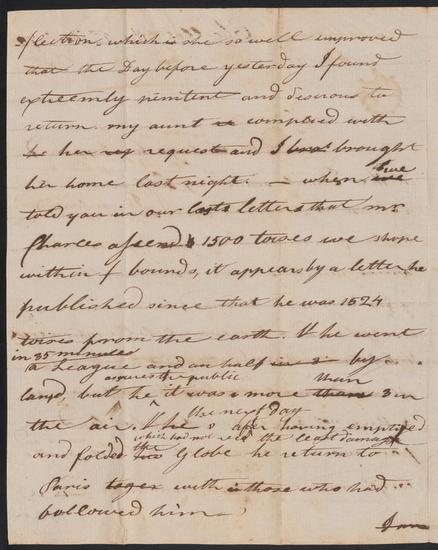 flection, which is she so well improved
that the Day before yesterday I found
extreemly penitent and desirous to
return. my aunt complyed with
her request and I brought
her home last night. — when we
told you in our last letters that mr
Charles assend 1500 toises we spope
within bounds, it appears by a letter he
published since that he was 1524
toises from the earth. & he went
in 35 minutes
a League and an half by
assures the public than
land, but he it was more them 3 in
the next day
the air. & he after having emptied
which had not rec'd the least damage
and folded the Globe he return to
Paris with those who had
bollowed him —
I am